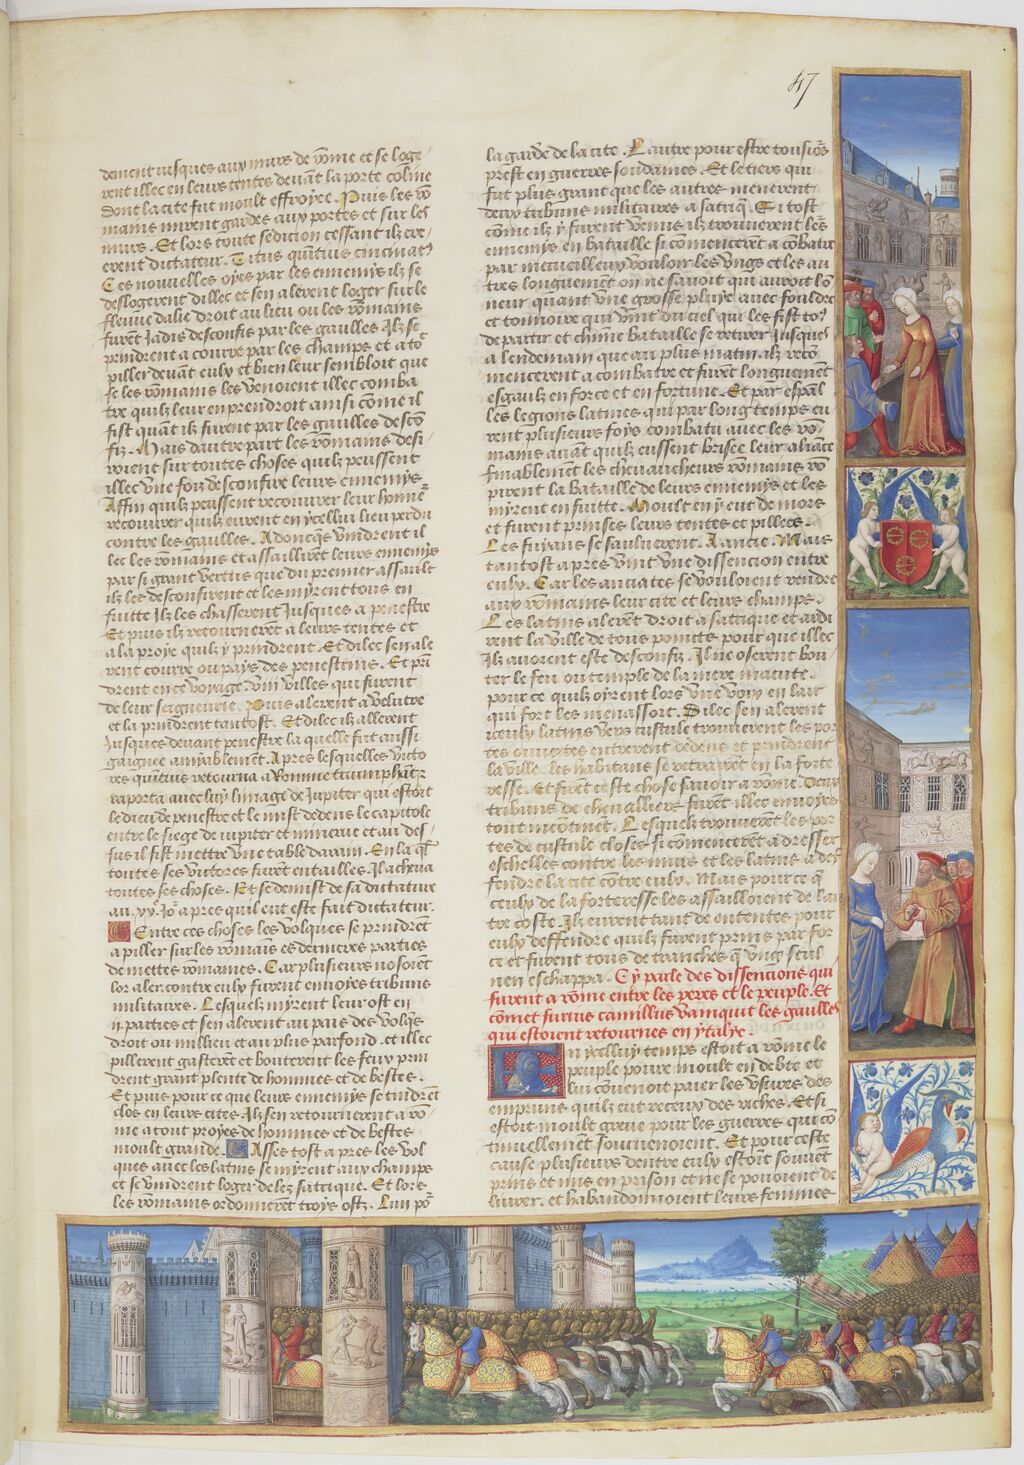 47
dement iusques aux murs de rõme et se loge
rent illec en leurs tentes deuãt la porte coline
dont la cite fut moult effroyee. Puis les rõ
mains mirent gardes aux portes et sur les
murs. Et lors toute sedicion cessant ilz cre
erent dictateur. Titus quintius cincinat9
Ces nouuelles oyes par les ennemys ilz se
deslogerent dillec et sen alerent loger sur le
fleuue dalie droit au lieu ou les rõmains
furẽt jadis desconfis par les gaulles. Ilz se
prindrent a courre par les champs et a to9
piller deuãt eulx et bien leur sembloit que
se les rõmains les venoient illec comba
tre quilz leur en prendroit ainsi cõme il
fist quãt ilz furent par les gaulles descõ
fiz. Mais dautre part les rõmains desi
roient sur toutes choses quilz peussent
illec vne foiz desconfire leurs ennemys
Affin quilz peussent recouurer leur hõne
recouurer quilz eurent en ycellui lieu perdu
contre les gaulles. Adoncques vindrent il
lec les rõmains et assaillirẽt leurs ennemys
par si grant vertus que du premier assault
ilz les desconfirent et les myrent tous en
fuitte Ilz les chasserent Jusques a penestre
Et puis ilz retournerẽt a leurs tentes et
a la proye quilz y prindrent. Et dilec sen ale
rent courre ou pays des penestins. Et prĩ
drent en ce voyage. viii villes qui furent
de leur seigneurie. Puis alerent a velitre
et la prindrent tantost. Et dilec ilz allerent
Jusques deuant penestre la quelle fut aussi
gaignee amyablemẽt. Apres lesquelles victo
res quitius retourna a Romme triumphãt
raporta auec luy limage de Jupiter qui estoit
le dieu de penestre et le mist dedens le capitole
entre le siege de iupiter et minerue et au des
sus il fist mettre vne table darain. En la qľ
toutes ses victores furẽt entailles. Il acheua
toutes ses choses. Et se demist de sa dictature
au. xx. Jo². apres quil eut este fait dictateur.
Entre ces choses les volques se prindrẽt
a piller sur les rõmais es dernieres parties
de mettes rõmaines. Car plusieurs nosoiẽt
lor aler. contre eulx furent enuoyes tribuns
militaires. Lesquelz myrent leur ost en
ii parties et sen alerent au pais des volq̃s
droit ou millieu et au plus parfond. et illec
pillerent gasterẽt et bouterent les feux prin
drent grant plente de hommes et de bestes.
Et puis pour ce que leurs ennemys se tindrẽt
clos en leurs cites. Ilz sen retournerent a rõ
me a tout proyes de hommes et de bestes
moult grande. Asses tost apres les vol
ques auec les latins se myrent aux champs
et se vindrent loger delez satrique. Et lors
les rõmains ordonnerẽt troys ostz. Lun po²
la garde de la cite. Lautre pour estre tousio²s
prest en guerres soudaines. Et le tiers qui
fut plus grant que les autres menerent
deux tribuns militaires a satriq̃. Et tost
cõme ilz y furent venus ilz trouuerent les
ennemys en bataille si commencerẽt a cõbatre
par merueilleux vouloir les vngs et les au
tres longuement on ne sauoit qui auroit lõ
neur quãt vne grosse pluye auec fouldre
et tonnoire qui vint du ciel que les fist to9
de partir et chũne bataille se retirer iusques
a lendemain que au plus matin ilz recõ
mencerent a combatre et furẽt longuement
esgaulx en force et en fortune. Et par espãl
les legions latines qui par long temps eu
rent plusieurs foys combatu auec les rõ
mains auãt quilz eussent brisee leur aliãce
finablement les cheuaucheurs rõmains rõ
pirent la bataille de leurs ennemys et les
myrent en fuitte. Moult en y eut de mors
et furent prinses leurs tentes et pillees.
Les fuyans se sauluerent. A ancie. Mais
tantost apres vint vne dissencion entre
eulx. Car les anciates se vouloient rendre
aux rõmains leur cite et leurs champs.
Les latins alerẽt droit a satrique et ardi
rent la ville de tous points pour que illec
Ilz auoient este desconfiz. Il ne oserent bou
ter le feu ou temple de la mere matute.
pour ce quilz oyrent lors vne voix en lair
qui fort les menassoit. Dilec sen alerent
iceulx latins vers tustule trouuerent les por
tes ouuertes entrerent dedens et prindrent
la ville. les habitans se retrayrẽt en la forte
resse. Et firẽt ceste chose sauoir a rõme. Deux
tribuns de cheuallier furẽt illec enuoyes
tout incontinẽt. Lesquelz trouuerent les por
tes de tustule closes si comencerẽt a dresser
eschelles contre les murs et les latins a def
fendre la cite cõtre eulx. Mais pour ce q̃
ceulx de la forteresse les assailloient de lau
tre coste. Ilz eurent tant de ententes pour
eulx deffendre quilz furent prins par for
ce et furent tous de tranches q̃ vng seul
nen eschappa. Cy parle des dissencions qui
furent a rõme entre les peres et le peuple. Et
cõmet furius camillus vainquit les gaulles
qui estoient retournes en ytalye.
En ycelluy temps estoit a rõme le
peuple poure moult en debte et
lui couenoit paier les vsures des
emprũns quilz eut receux des riches. Et si
estoit moult greue pour les guerres qui cõ
tinuellement souruenoient. Et pour ceste
cause plusieurs dentre eulx estoiẽt souuẽt
prins et mis en prison et ne se pouoient de
liurer. et habandonnoient leurs femmes